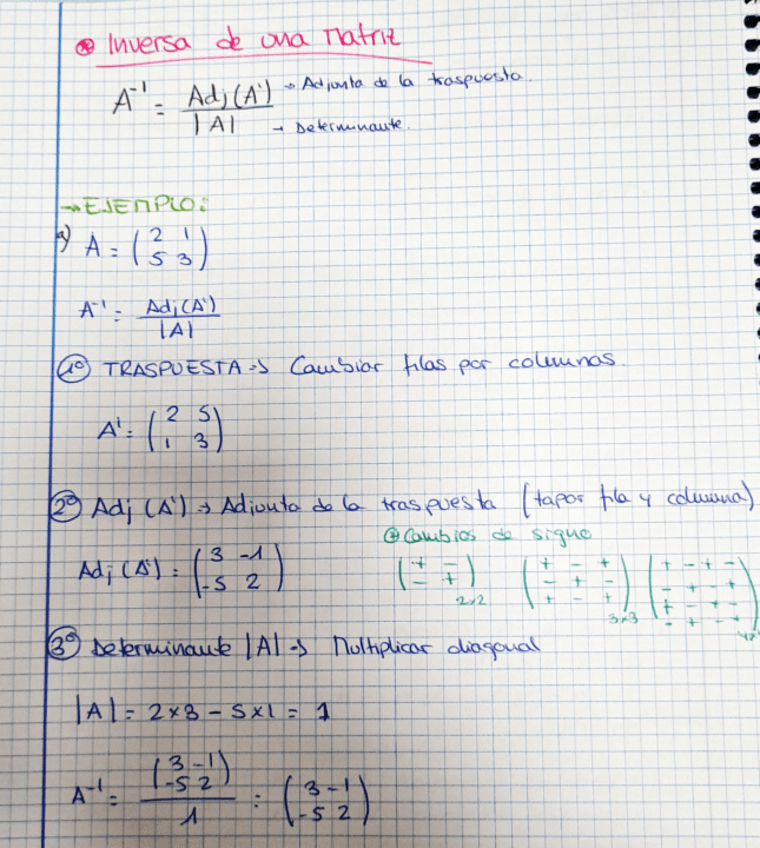 ⊛ Inversa de una Matriz
A⁻¹ = Adj(A') / |A| → Adjunta de la traspuesta.
→ Determinante.
→ EJEMPLO:
a) A = (2 1
5 3)
A⁻¹ = Adj(A') / |A|
1º TRASPUESTA → Cambiar filas por columnas.
A' = (2 5
1 3)
2º Adj (A') → Adjunta de la traspuesta (tapar fila y columna)
⊛ Cambios de signo
Adj (A') = (3 -1
-5 2)
(+ -
- +) 2x2
(+ - +
- + -
+ - +) 3x3
(+ - + -
- + - +
+ - + -
- + - +
3º Determinante |A| → Multiplicar diagonal
|A| = 2x3 - 5x1 = 1
A⁻¹ = (3 -1
-5 2) / 1 = (3 -1
-5 2)